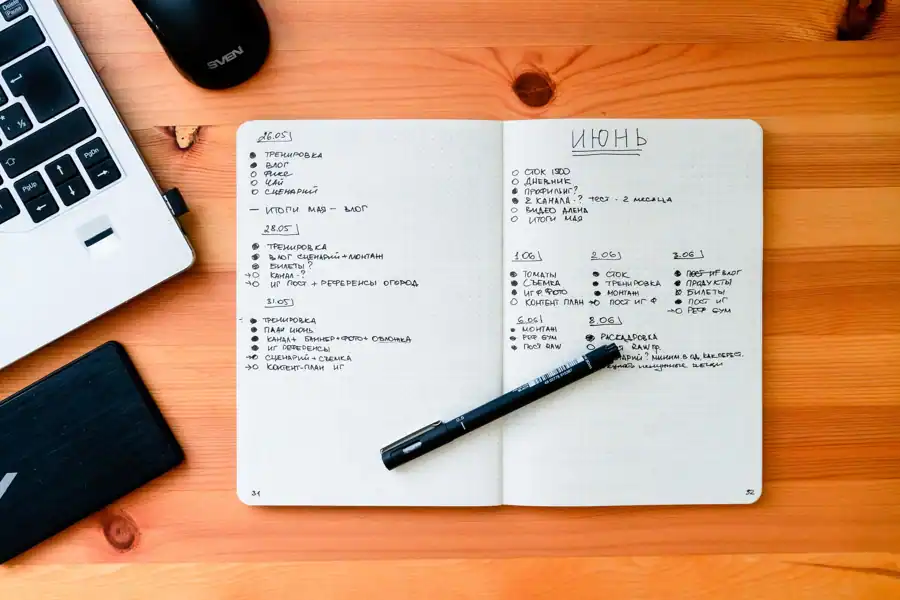 Delete
Pause
PgUp
PgDn
SVEN
26.05
ТРЕНИРОВКА
ВЛОГ
ФИКС
ЧАЙ
СЦЕНАРИЙ
— ИТОГИ МАЯ — ВЛОГ
28.05
ТРЕНИРОВКА
ВЛОГ СЦЕНАРИЙ + МОНТАЖ
БИЛЕТЫ?
КАНАЛ - ?
ИГ ПОСТ + РЕФЕРЕНСЫ ОГОРОД
31.05
ТРЕНИРОВКА
ПЛАН ИЮНЬ
КАНАЛ + БАННЕР + ФОТО + ОБЛОЖКА
ИГ РЕФЕРЕНСЫ
СЦЕНАРИЙ + СЪЕМКА
КОНТЕНТ-ПЛАН ИГ
31
ИЮНЬ
СТОК 1500
ДНЕВНИК
ПРОФИЛЬНГ?
2 КАНАЛА - ? ТЕСТ - 2 МЕСЯЦА
ВИДЕО АЛЕНА
ИТОГИ МАЯ
1.06
ТОМАТЫ
СЪЕМКА
ИГ Ф ФОТО
КОНТЕНТ ПЛАН
2.06
СТОК
ТРЕНИРОВКА
МОНТАЖ
ПОСТ ИГ Ф
3.06
ПОСТ ИГ ВЛОГ
ПРОДУКТЫ
БИЛЕТЫ
ПОСТ ИГ
РЕФ GYM
6.06
МОНТАЖ
РЕФ GYM
ПОСТ RAW
8.06
РАСКАДРОВКА
RAW
32